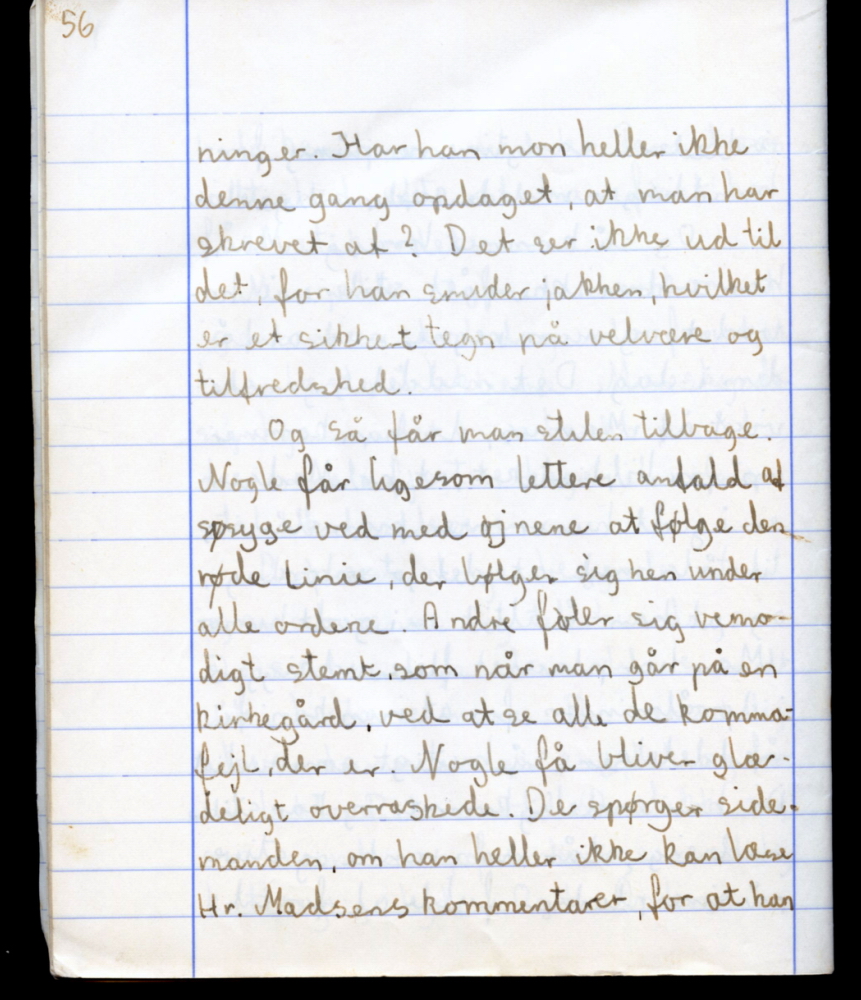 56
ninger. Har han mon heller ikke
denne gang opdaget, at man har
skrevet af? Det ser ikke ud til
det, for han smider jakken, hvilket
er et sikkert tegn på velvære og
tilfredshed.
Og så får man stilen tilbage.
Nogle får ligesom lettere anfald af
søsyge ved med øjnene at følge den
røde linie, der bølger sig hen under
alle ordene. Andre føler sig vemo-
digt stemt, som når man går på en
kirkegård, ved at se alle de komma-
fejl, der er. Nogle få bliver glæ-
deligt overraskede. De spørger side-
manden, om han heller ikke kan læse
Hr. Madsens kommentarer, for at han